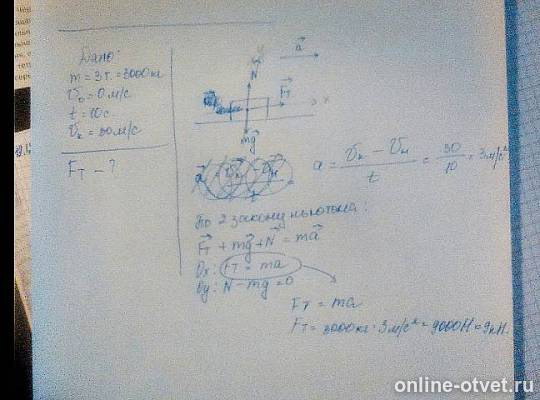 Дано:
m = 3т. = 3000кг
V₀ = 0 м/с
t = 10с
Vₖ = 30 м/с
Fт - ?
y
a
N
Fт
x
mg
a = (Vₖ - Vн)/t = 30/10 = 3м/с²
По 2 закону ньютона:
Fт + mg + N = ma
Ox: Fт = ma
Oy: N - mg = 0
Fт = ma
Fт = 3000кг · 3м/с² = 9000Н = 9кН.
online-otvet.ru